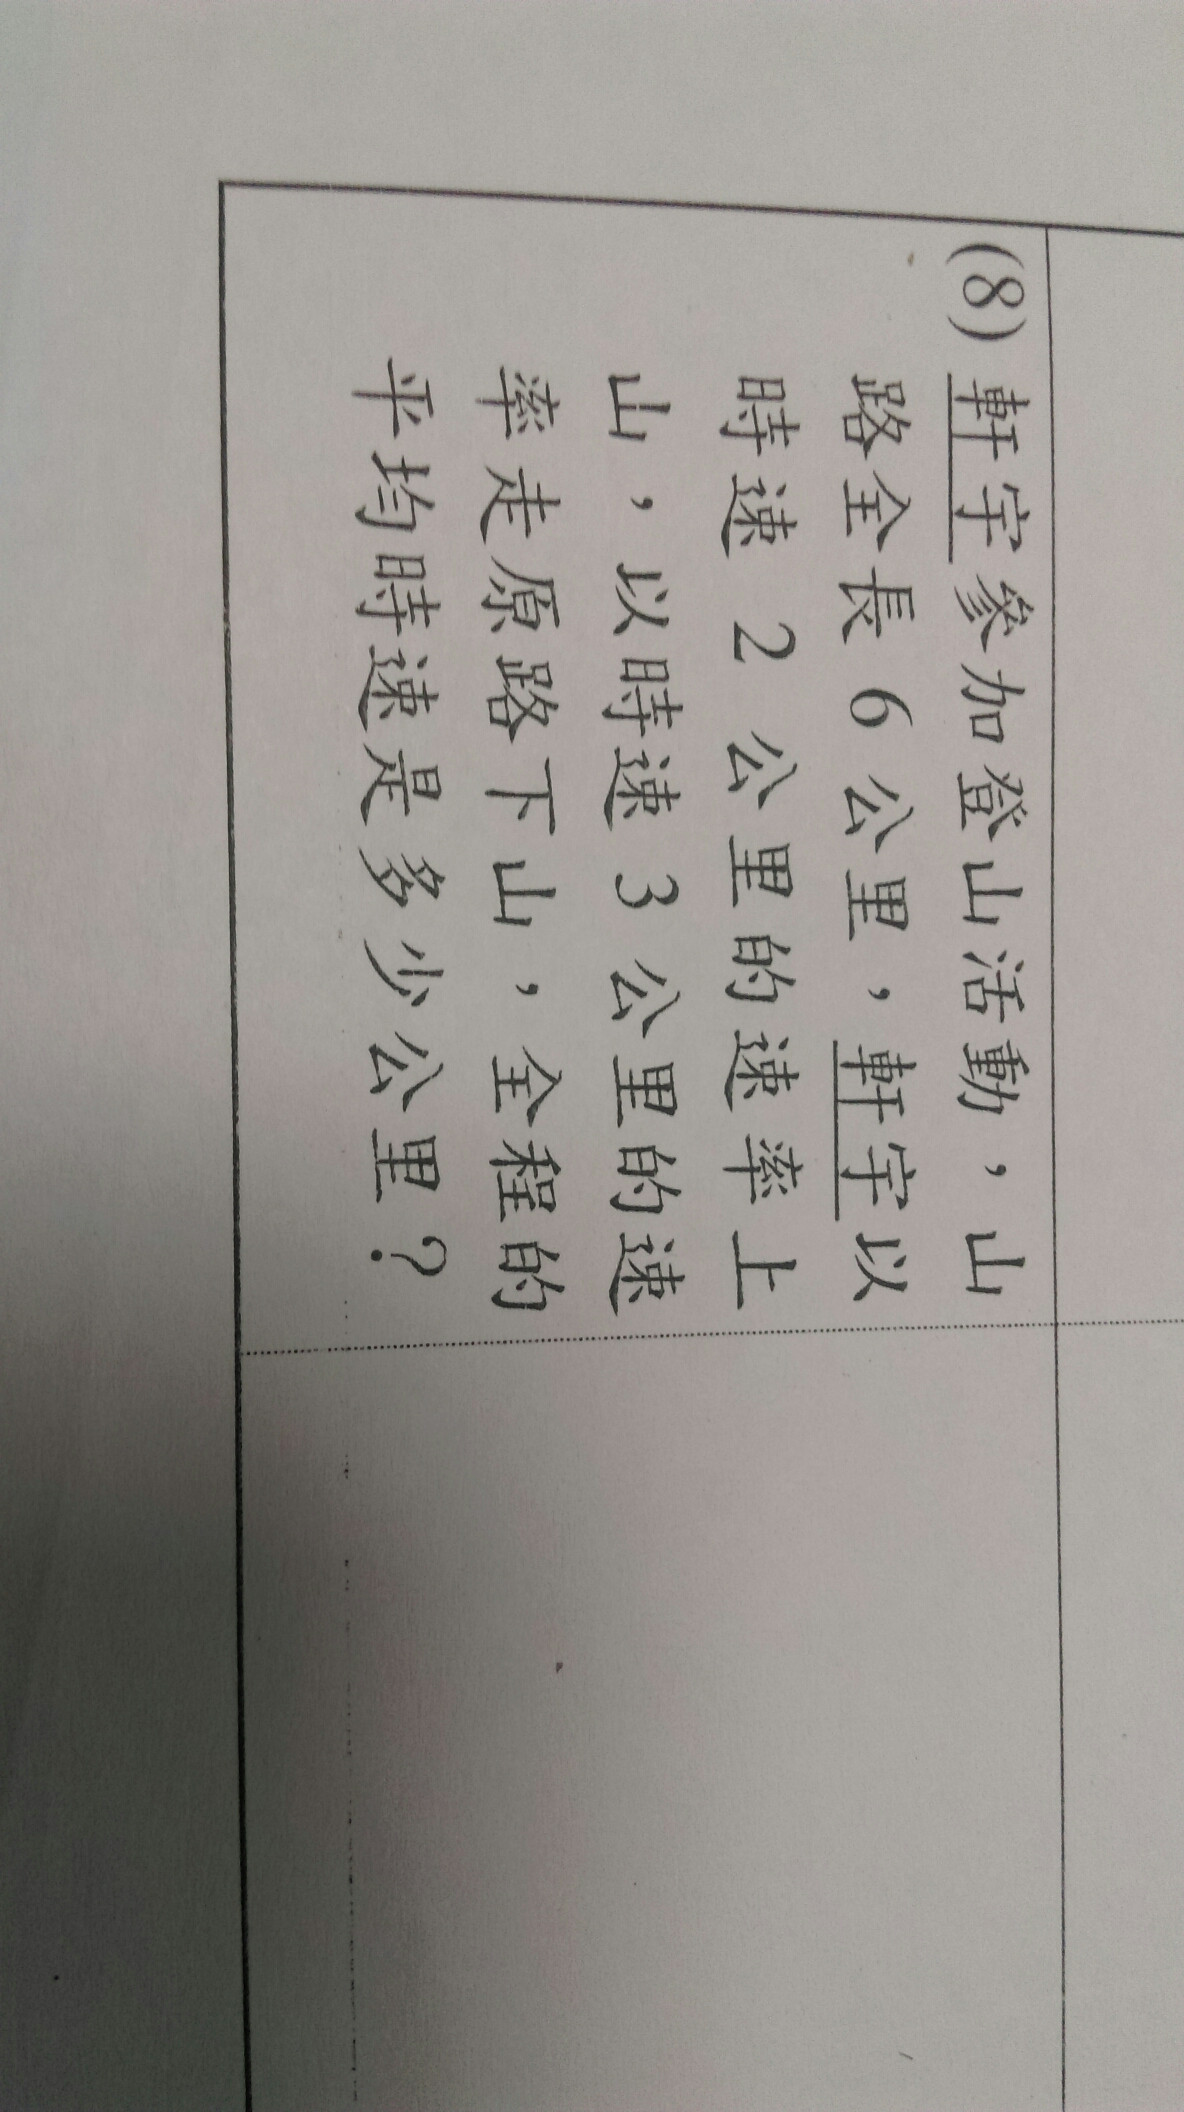 (8) 軒宇參加登山活動，山
路全長 6 公里，軒宇以
時速 2 公里的速率上
山，以時速 3 公里的速
率走原路下山，全程的
平均時速是多少公里？